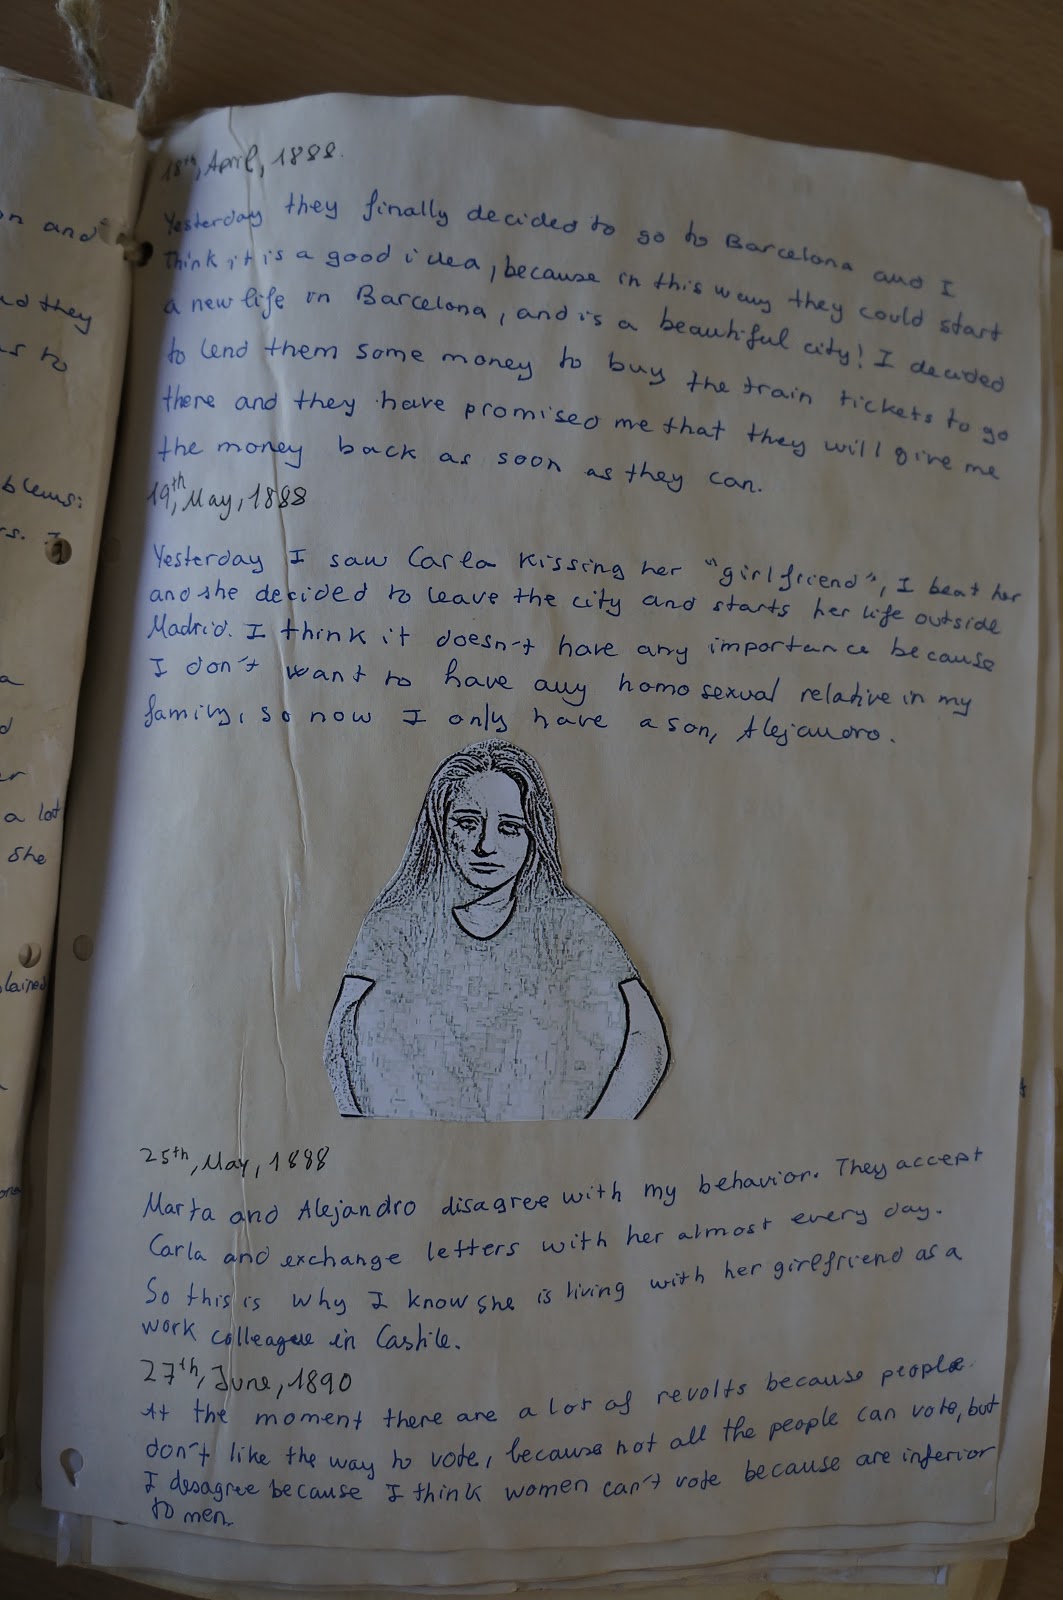 on and
and they
as to
blems:
rs. I
a
d
er
a lot
she
plained
18th, April, 1888.
Yesterday they finally decided to go to Barcelona and I
think it is a good idea, because in this way they could start
a new life in Barcelona, and is a beautiful city! I decided
to lend them some money to buy the train tickets to go
there and they have promised me that they will give me
the money back as soon as they can.
19th, May, 1888
Yesterday I saw Carla kissing her "girlfriend", I beat her
and she decided to leave the city and starts her life outside
Madrid. I think it doesn't have any importance because
I don't want to have any homosexual relative in my
family, so now I only have a son, Alejandro.
25th, May, 1888
Marta and Alejandro disagree with my behavior. They accept
Carla and exchange letters with her almost every day.
So this is why I know she is living with her girlfriend as a
work colleague in Castile.
27th, June, 1890
At the moment there are a lot of revolts because people
don't like the way to vote, because not all the people can vote, but
I desagree because I think women can't vote because are inferior
to men.